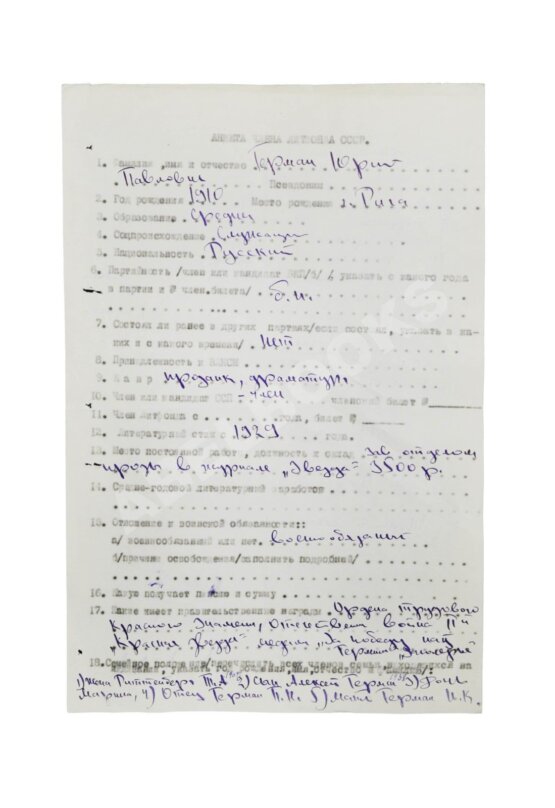 АНКЕТА ЧЛЕНА ЛИТФОНДА СССР.
1. Фамилия, имя и отчество Герман Юрий
Павлович Псевдоним
2. Год рождения 1910 Место рождения г. Рига
3. Образование средн
4. Соцпроисхождение служащий
5. Национальность Русский
6. Партийность /член или кандидат ВКП/б/ указать с какого года
в партии и № член.билета/ б.п.
7. Состоял ли ранее в других партиях/если состоял, указать в ка-
ких и с какого времени/ нет
8. Принадлежность к ВЛКСМ
9. Жанр прозаик, драматург
10. Член или кандидат ССП - член членский билет №
11. Член Литфонда с года, билет №
12. Литературный стаж с 1929 года.
13. Место постоянной работы, должность и оклад зав. отделом
прозы в журнале „Звезда" 3500 р.
14. Средне-годовой литературный заработок
15. Отношение к воинской обязанности::
а/ военнообязанный или нет. военнообязанный
б/причина освобождения/заполнить подробней/
16. Какую получает пенсию и сумму
17. Какие имеет правительственные награды Ордена Трудового
Красного Знамени, Отечествен войны II й
„Красная звезда" медали „За победу над
Германией"
18. Семейное положение/перечислить всех членов семьи, находящихся на
иждивении, указать год рождения, имя, отчество и фамилию/:
1) Жена Риттенберг Т.А. 2) Сын Алексей Герман 3) Сын
Михаил, 4) Отец Герман П.Н. 5) Мать Герман Н.К.